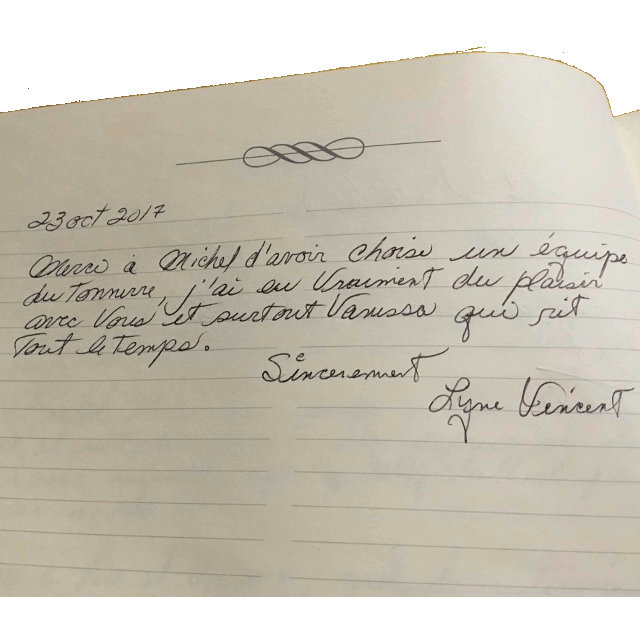 23 oct 2017
Merci à Michel d'avoir choisie un équipe
du Tonnerre, j'ai eu Vraiment du plaisir
avec Vous et surtout Vanessa qui rit
Tout le temps.
Sincerement
Lyne Vincent